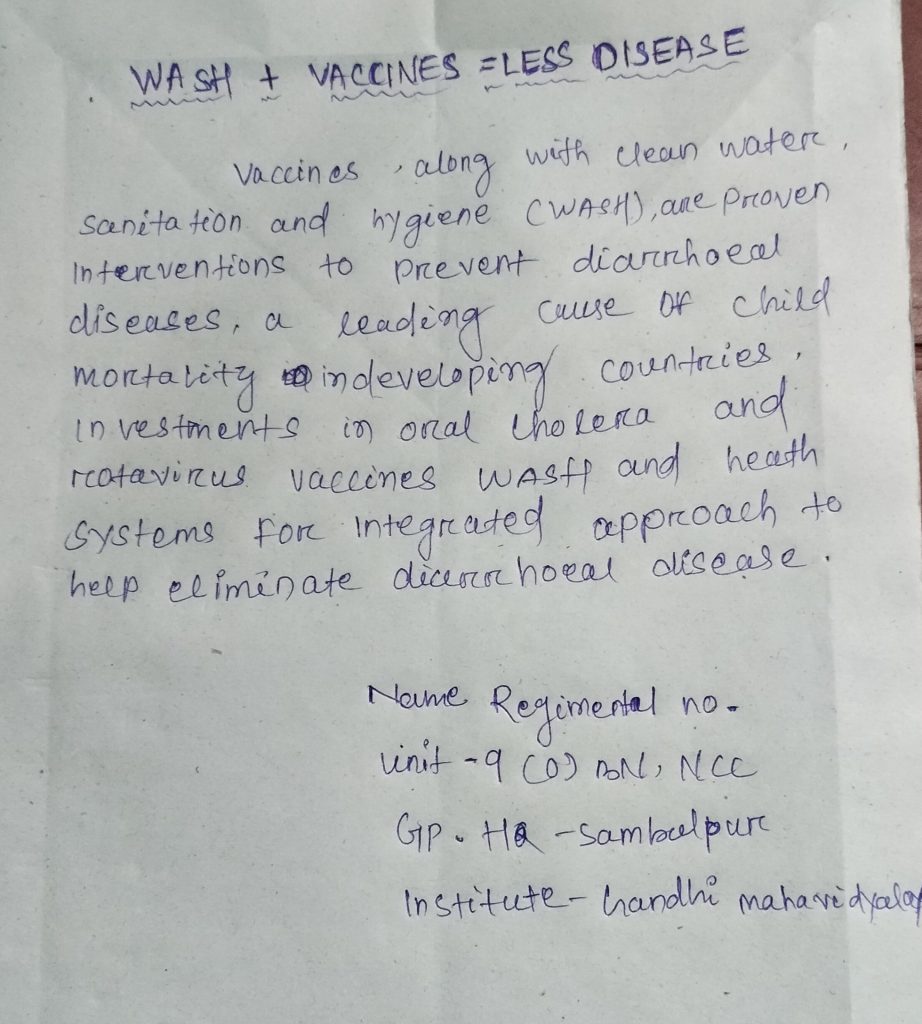 WASH + VACCINES = LESS DISEASE
Vaccines, along with clean water,
sanitation and hygiene (WASH), are proven
Interventions to prevent diarrhoeal
diseases, a leading cause of child
mortality in developing countries,
investments in oral cholera and
rotavirus vaccines WASH and heath
systems for integrated approach to
help eliminate diarrhoeal disease.
Name Regimental no.
Unit - 9 (O) BN, NCC
GP. HQ - Sambalpur
Institute - Gandhi mahavidyalay